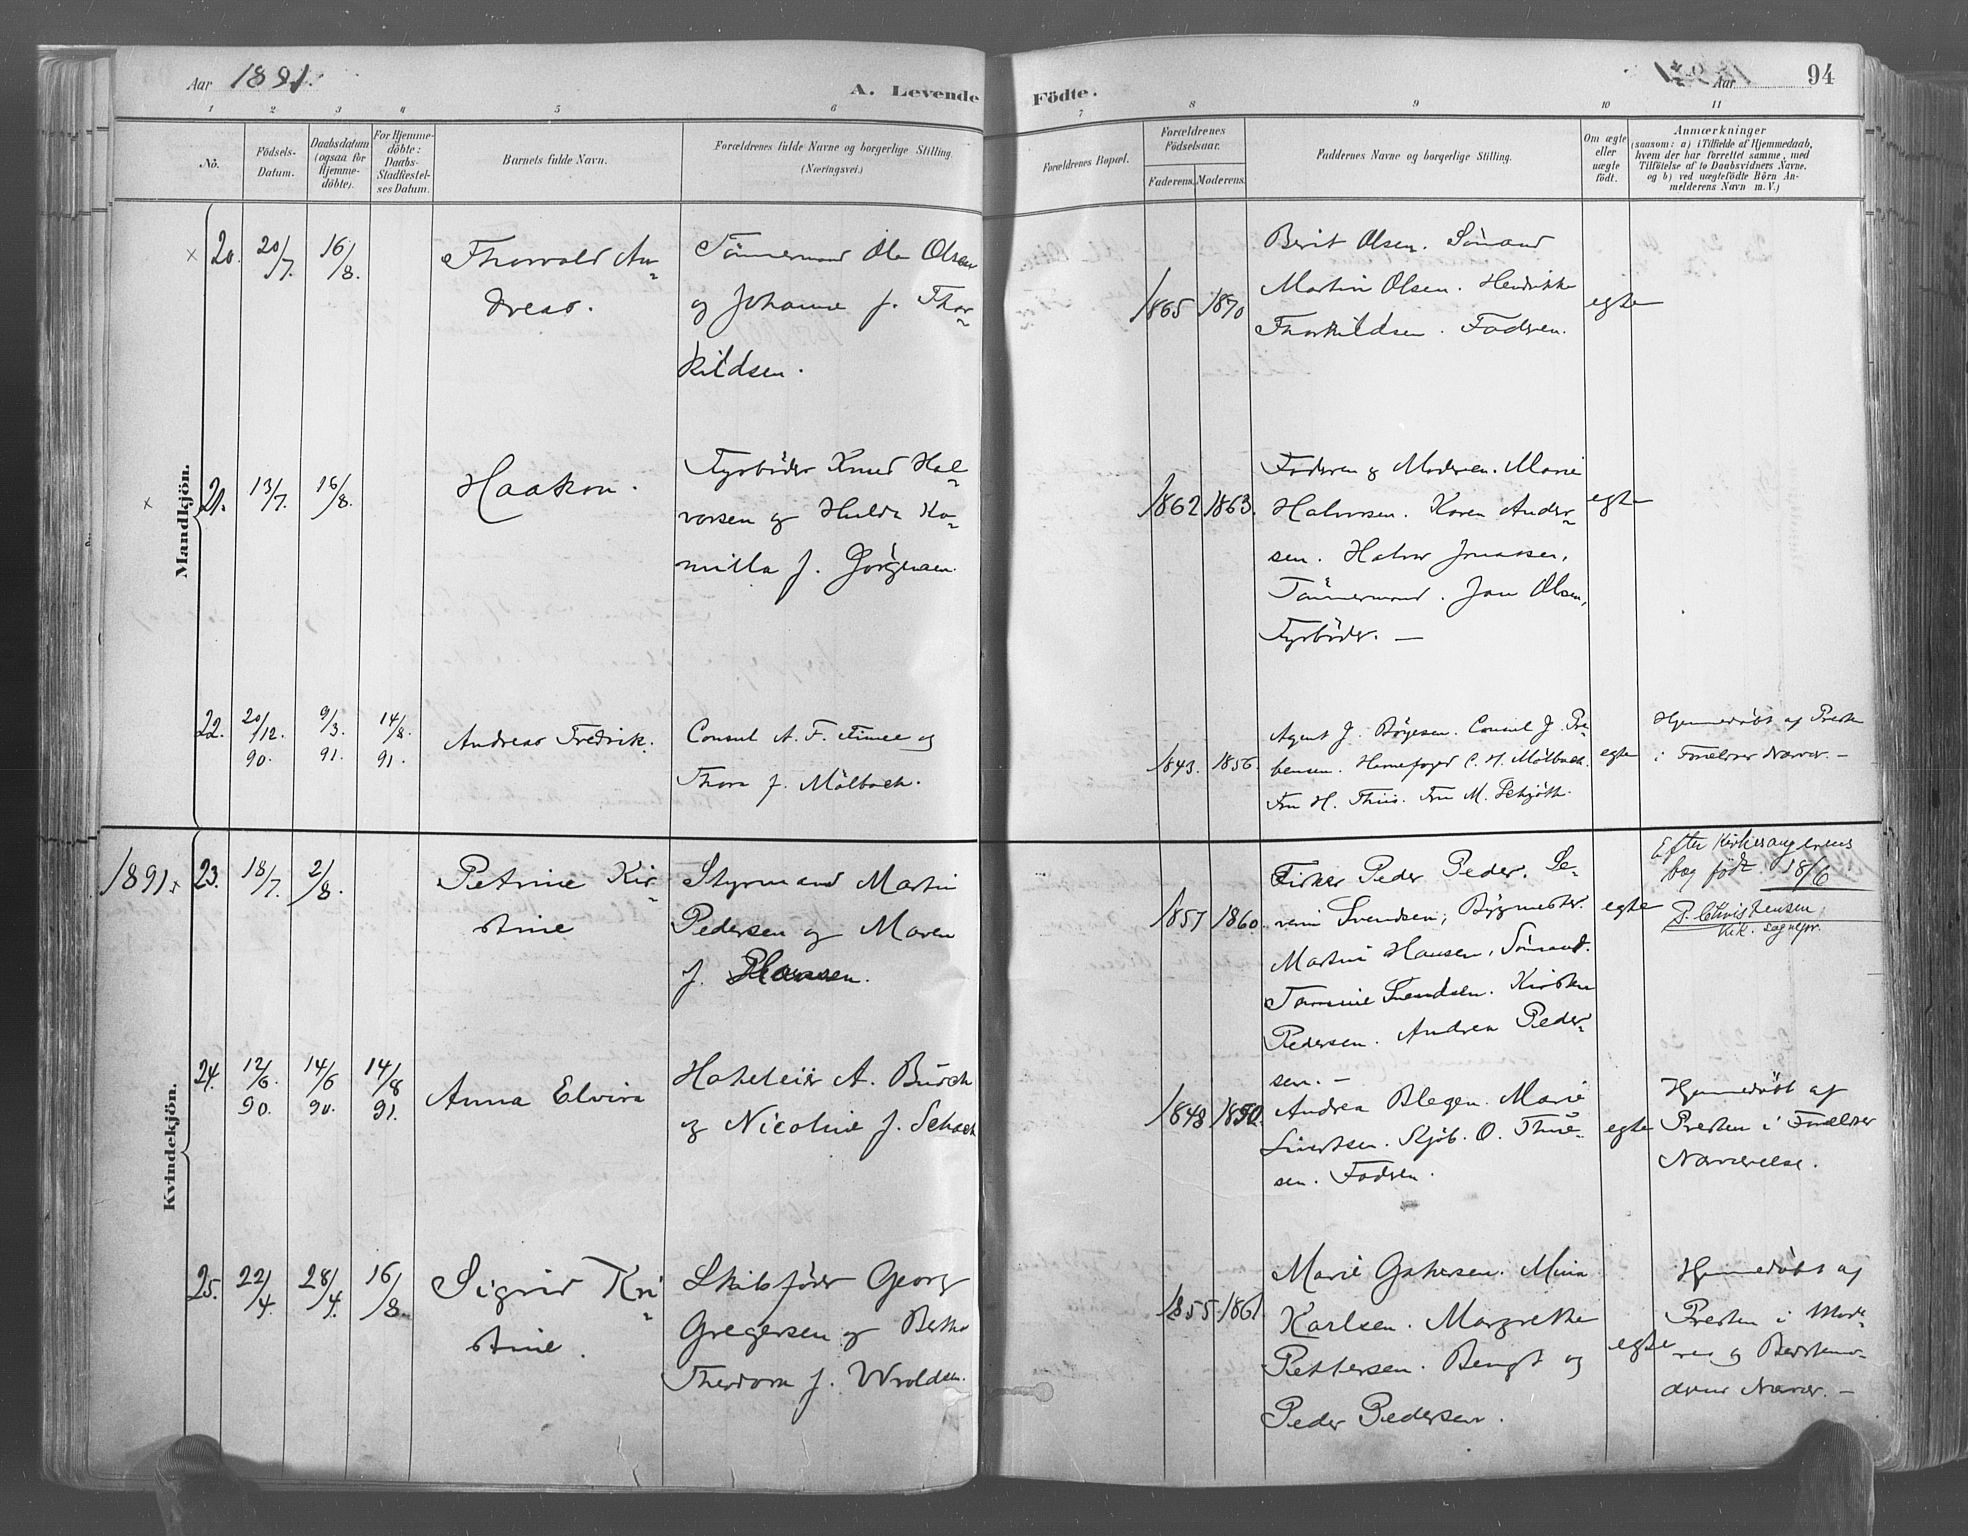 Aar 1891.
A. Levende Födte.
Aar 1891
94
1 2 3 4 5 6 7 8 9 10 11
No.
Födsels-
Datum.
Daabsdatum
(ogsaa for
Hjemme-
döbte).
For Hjemme-
döbte:
Daabs-
Stadfæstel-
ses Datum.
Barnets fulde Navn.
Forældrenes fulde Navne og borgerlige Stilling.
(Næringsvei.)
Forældrenes Bopæl.
Forældrenes
Födselsaar.
Faderens. Moderens.
Faddernes Navne og borgerlige Stilling.
Om ægte
eller
uægte
födt.
Anmærkninger
(saasom: a) i Tilfælde af Hjemmedaab,
hvem der har forrettet samme, med
Tilföielse af to Daabsvidners Navne.
og b) ved uægtefödte Börn An-
melderens Navn m. V.)
Mandkjön.
× 20. 20/7. 16/8.
Thorvald An-
dreas.
Tömmermand Ole Olsen
og Johanne f. Thor-
kildsen.
1865 1870
Berit Olsen. Sömand
Martin Olsen. Hendrikke
Thorkildsen. Faderen.
egte
× 21. 13/7. 16/8.
Haakon.
Fyrböder Knud Hal-
vorsen og Hulda Ka-
milla f. Görgensen.
1862 1863.
Faderen og Moderen. Marie
Halvorsen. Karen Ander-
sen. Halvor Jonassen,
Tömmermand. Jon Olsen,
Fyrböder. —
egte
22. 20/12. 90. 9/3. 91. 14/8. 91.
Andreas Fredrik.
Consul A. F. og
Thora f. Mölbach.
1843. 1856.
Agent J. Börgesen. Consul J. Pre-
bensen. Havnefoged C. H. Mölbach.
Fru H. Thiis. Fru M. Schjöth.
egte
Hjemmedöbt af Presten
i Forældres Nærvær. —
Kvindekjön.
1891 × 23. 18/7. 2/8.
Petrine Kir-
stine
Styrmand Martin
Pedersen og Maren
f. Hansen.
1857 1860.
Peder Peder. Se-
verin Svendsen, Bygmester.
Martin Hansen, Sömand.
Tomine Svendsen. Kirsten
Pedersen. Andrea Peder-
sen. —
egte
Efter Kirkesangerens
bog födt 18/6
P. Christensen,
kst. sognepr.
24. 12/6. 90. 14/6 90. 14/8 91.
Anna Elvira
Hoteleier A. Busch
og Nicoline f. Schach
1848 1850.
Andrea Blegen. Marie
Sivertsen. Skjöb. O. Thue-
sen. Fadren.
egte
Hjemmedöbt af
Presten i Forældres
Nærværelse.
25. 22/4. 28/4. 16/8.
Sigrid Kri-
stine.
Skibsförer Georg
Gregersen og Bertha
Theodora f. Wroldsen.
1855. 1861.
Marie Gjertsen. Mina
Karlsen. Margrethe
Pettersen. Bengt og
Peder Pedersen.
egte
Hjemmedöbt af
Presten i Mode-
rens og Bedstemo-
drens Nærvær. —